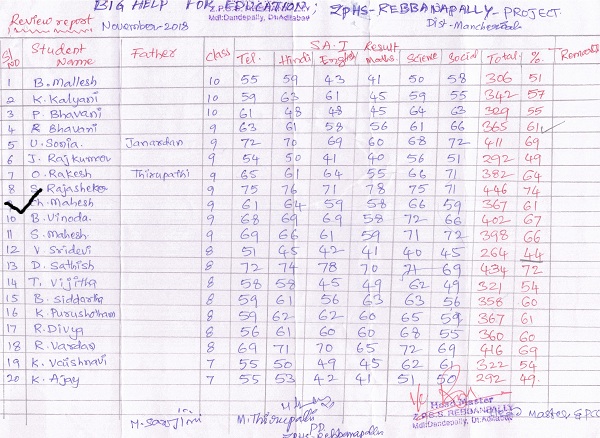 BIG HELP FOR EDUCATION; ZPHS-REBBANAPALLY-PROJECT.
Review report November-2018 Mdl:Dandepally, Dt:Adilabad Dist-Mancherial
SA-I Result
Sl NO Student Name Father Class Tel. Hindi English Maths Science Social Total % Remarks
1 B. Mallesh 10 55 59 43 41 50 58 306 51
2 K. Kalyani 10 59 63 61 45 59 55 342 57
3 P. Bhavani 10 61 48 48 45 64 63 329 55
4 R Bhavani 9 63 61 58 56 61 66 365 61
5 U. Sonia. Janardan 9 72 70 69 60 68 72 411 69
6 J. Rajkumar 9 54 50 41 40 56 51 292 49
7 O. Rakesh Thirupathi 9 65 61 64 55 66 71 382 64
8 S. Rajasheker 9 75 76 71 78 75 71 446 74
Ch. Mahesh 9 61 64 59 58 66 59 367 61
10 B. Vinoda. 9 68 69 69 58 72 66 402 67
11 S. Mahesh 9 69 66 61 59 71 72 398 66
12 V. Sridevi 8 51 45 42 41 40 45 264 44
13 D. Sathish 8 72 74 78 70 71 69 434 72
14 T. Vijitha 8 58 58 45 49 62 49 321 54
15 B. Siddartha 8 59 61 56 63 63 56 358 60
16 K. Purushotham 8 59 62 62 60 65 59 367 61
17 R. Divya 8 56 61 60 60 68 55 360 60
18 R. Vardan 8 69 71 70 65 72 69 416 69
19 K. Vaishnavi 7 55 50 49 45 62 61 322 54
20 K. Ajay 7 55 53 42 41 51 50 292 49
M. Sarojini M. Thirupathi Head Master
PD Z.P.H.S. REBBANAPALLY
ZPHS-Rebbanapally Mdl:Dandepally, Dt:Adilabad